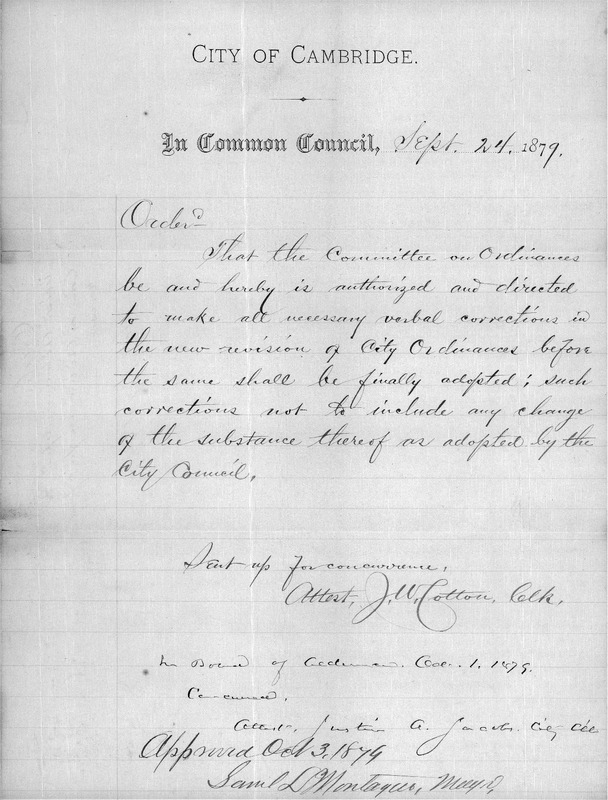 CITY OF CAMBRIDGE.
In Common Council, Sept. 24. 1879.
Order^d
That the Committee on Ordinances
be and hereby is authorized and directed
to make all necessary verbal corrections in
the new revision of City Ordinances before
the same shall be finally adopted; such
corrections not to include any change
of the substance thereof as adopted by the
City Council.
Sent up for concurrence.
Attest, J. W. Cotton, Clk.
In Board of Aldermen. Oct. 1. 1879.
Concurred.
Attest, Justin A. Jacobs. City Clk
Approved Oct 3, 1879
Saml L Montague, Mayor